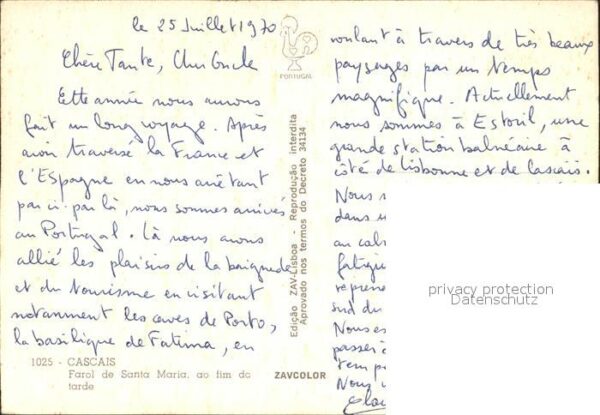 le 25 Juillet 1970
Chère Tante, Cher Oncle
Cette année nous avons
fait un long voyage. Après
avoir traversé la France et
l'Espagne en nous arrêtant
par ci- par là, nous sommes arrivés
au Portugal. Là nous avons
allié les plaisirs de la baignade
et du tourisme en visitant
notamment les caves de Porto,
la basilique de Fatima, en
1025 - CASCAIS
Farol de Santa Maria, ao fim da
tarde
PORTUGAL
Edição ZAV-Lisboa - Reprodução interdita
Aprovado nos termos do Decreto 34134
ZAVCOLOR
roulant à travers de très beaux
paysages par un temps
magnifique. Actuellement
nous sommes à Estoril, une
grande station balnéaire à
côté de Lisbonne et de Cascais.
Nous
dans
au
sud du
Nous
passer
Nous
privacy protection
Datenschutz